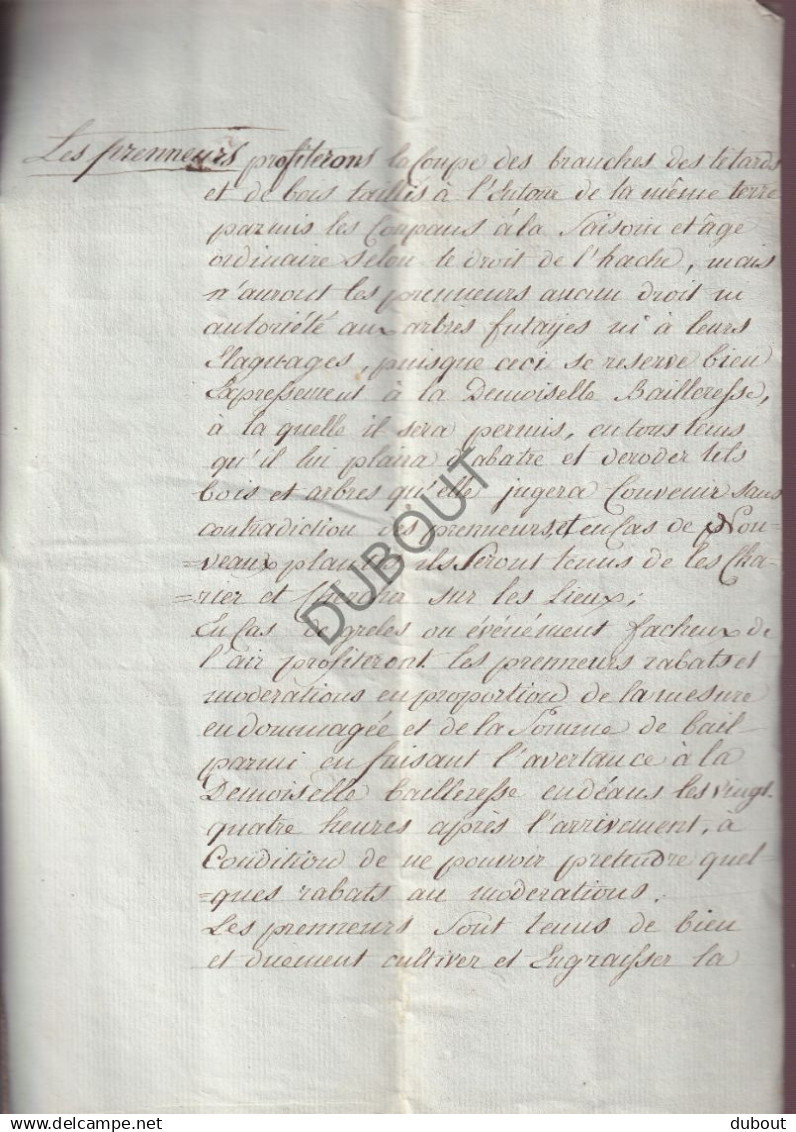 Les prenneurs profiterons la Coupe des branches des tétards
et de bois taillis à l'Entour de la même terre
parmis les Coupans à la Saisoin et âge
ordinaire selon le droit de l'hache, mais
n'auront les prenneurs aucun droit ni
autoriété aux arbres futayes ni à leurs
Elaguages, puisque ceci se reserve bien
Expressement à la Demoiselle Bailleresse,
à la quelle il sera permis, en tous tems
qu'il lui plaira d'abatre et deroder tels
bois et arbres qu'elle jugera Convenir sans
contradiction des prenneurs, et en Cas de Nou-
=veaux plantis ils seront tenus de les Cha-
=rier et Chercher sur les Lieux;
En Cas de greles ou événément facheux de
l'air profiteront les prenneurs rabats et
moderations en proportion de la mesure
endommagée et de la Somme de bail
parmi en faisant l'avertance à la
Demoiselle bailleresse endéans les vingt
quatre heures après l'arrivement, à
Condition de ne pouvoir pretendre quel-
=ques rabats au moderations.
Les prenneurs Sont tenus de bien
et duement cultiver et Engraisser la
DUBOUT
delcampe.net
dubout